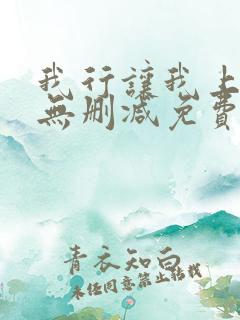 我行讓我上
無刪减免費
青衣知白
未经同意禁止转载